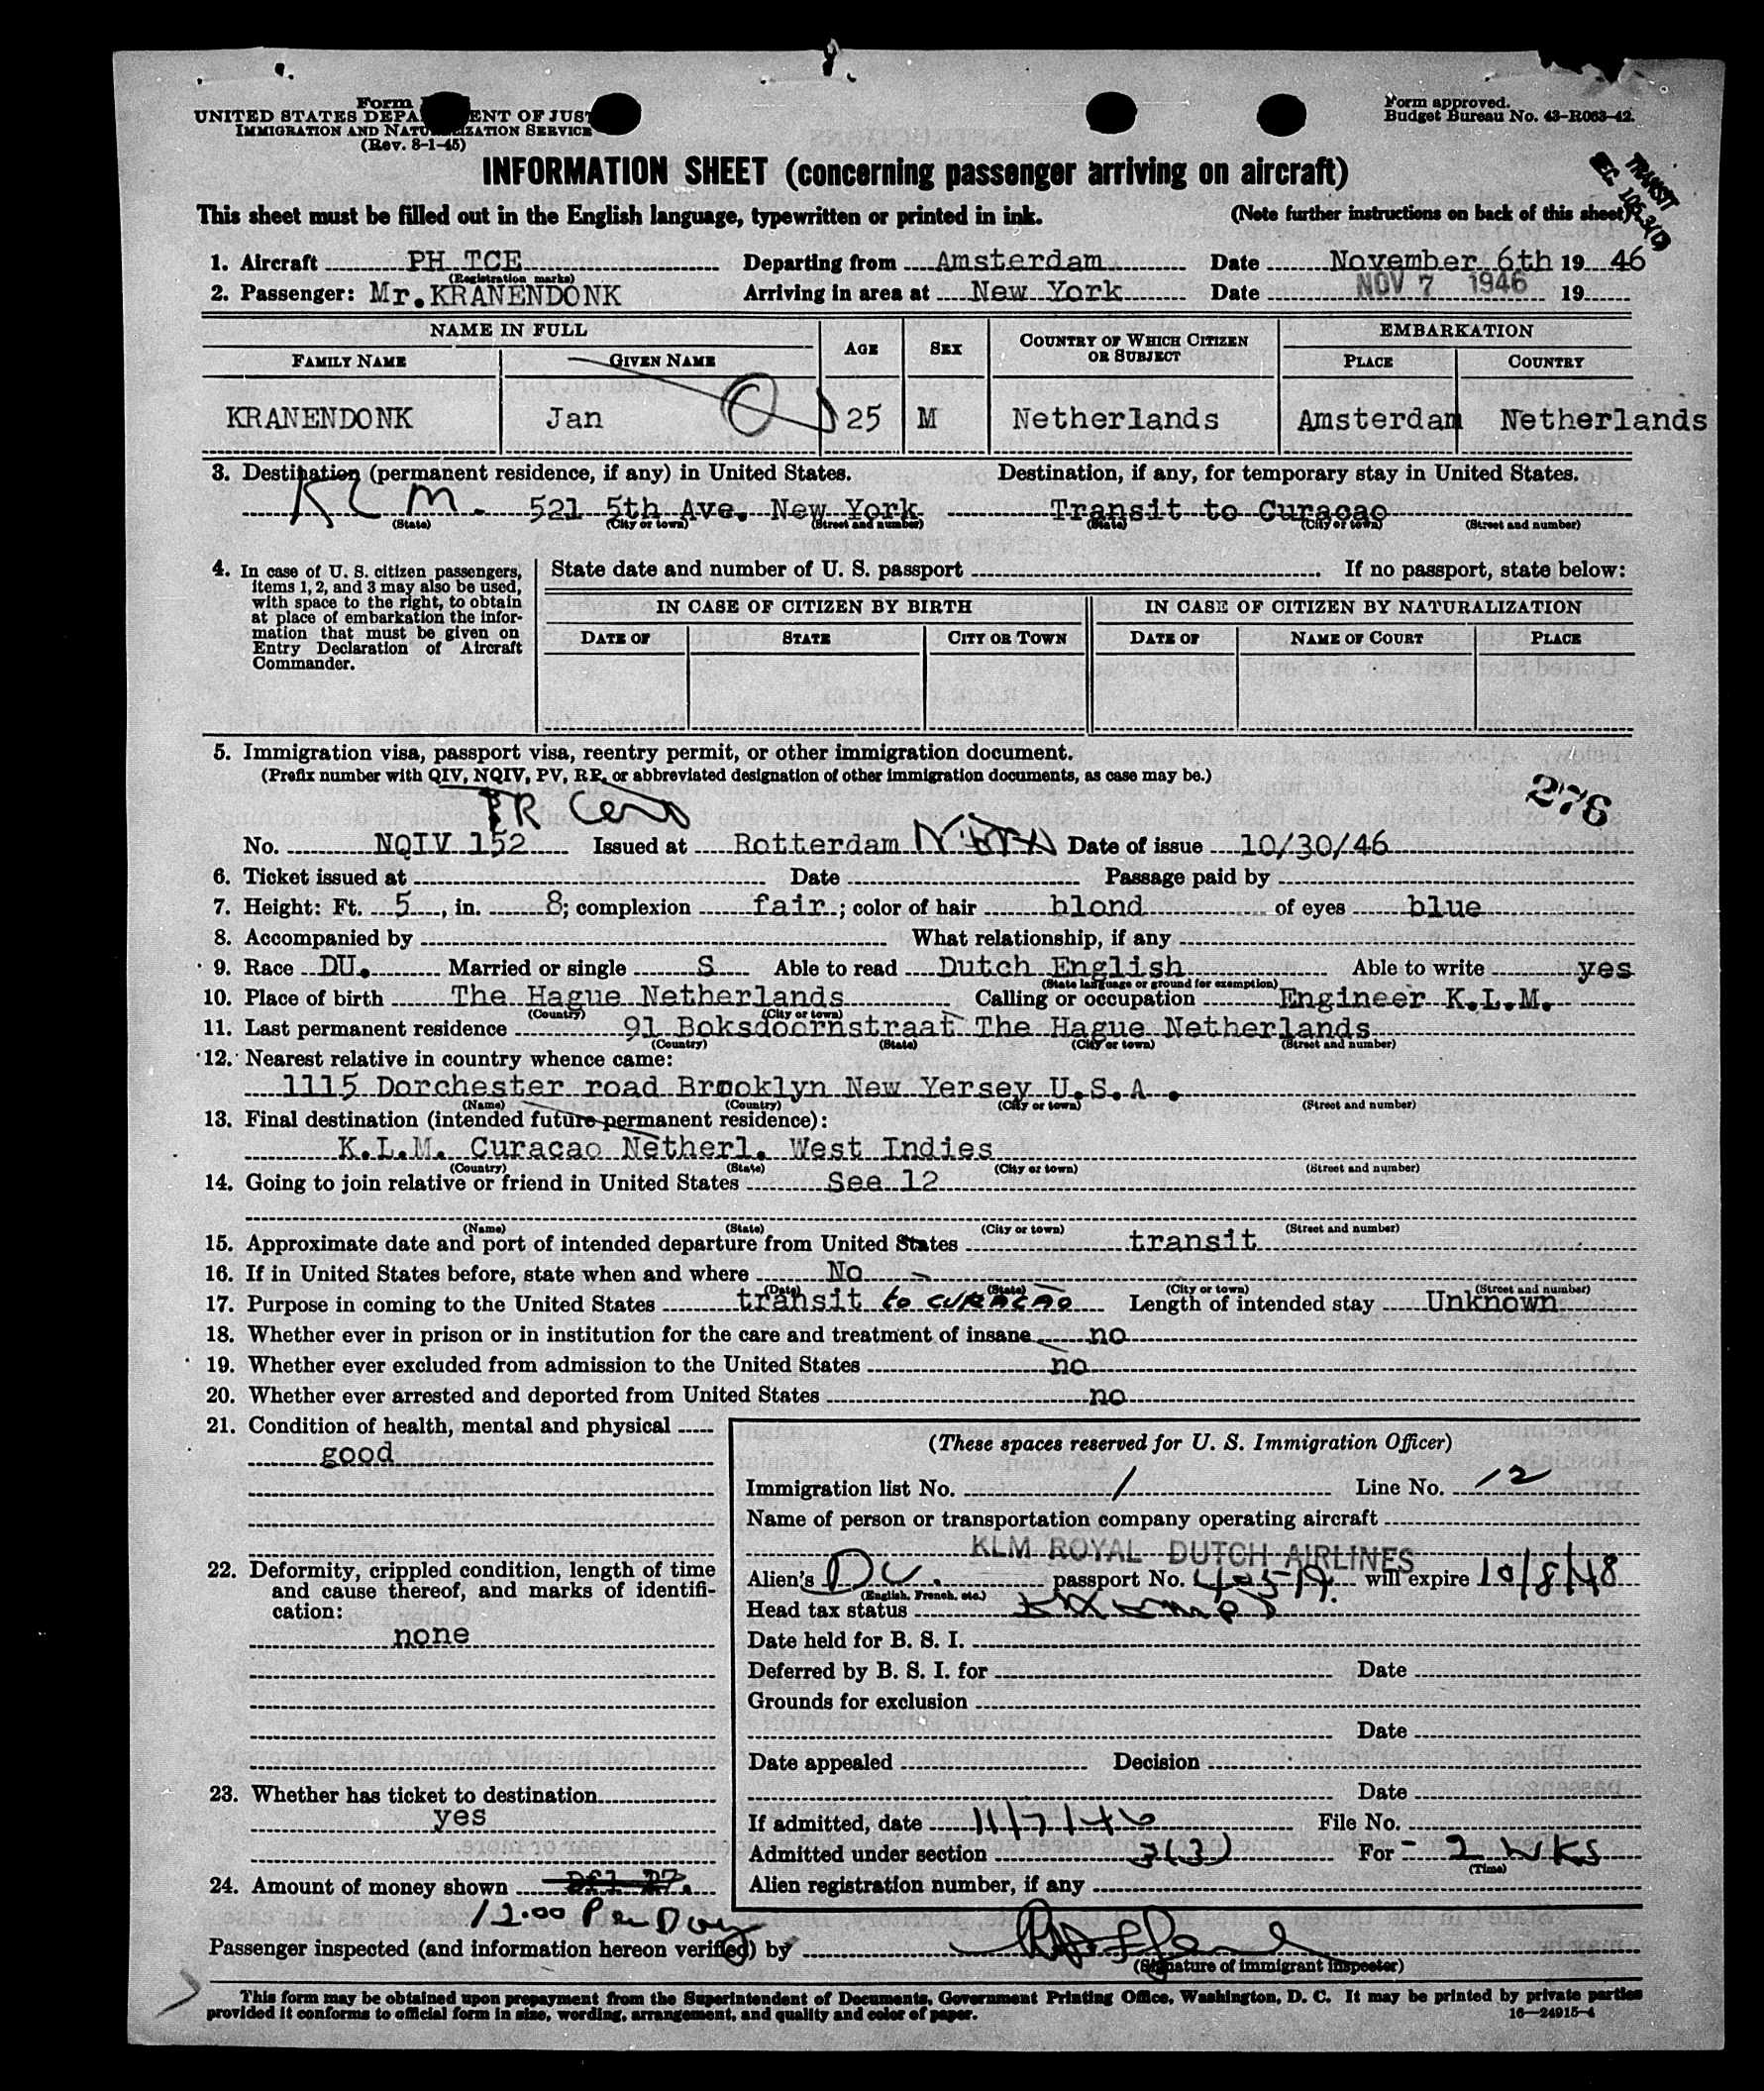 Form
UNITED STATES DEPA ENT OF JUST
IMMIGRATION AND NATU IZATION SERVICE
(Rev. 8-1-45)
Form approved.
Budget Bureau No. 43-R063-42.
INFORMATION SHEET (concerning passenger arriving on aircraft)
TRANSIT
This sheet must be filled out in the English language, typewritten or printed in ink. (Note further instructions on back of this sheet)
1. Aircraft PH TCE Departing from Amsterdam Date November 6th 19 46
(Registration marks)
2. Passenger: Mr. KRANENDONK Arriving in area at New York Date NOV 7 1946 19
NAME IN FULL
FAMILY NAME GIVEN NAME AGE SEX COUNTRY OF WHICH CITIZEN OR SUBJECT EMBARKATION
PLACE COUNTRY
KRANENDONK Jan 25 M Netherlands Amsterdam Netherlands
3. Destination (permanent residence, if any) in United States. Destination, if any, for temporary stay in United States.
KLM. 521 5th Ave. New York Transit to Curacao
(State) (City or town) (Street and number) (State) (City or town) (Street and number)
4. In case of U. S. citizen passengers,
items 1, 2, and 3 may also be used,
with space to the right, to obtain
at place of embarkation the infor-
mation that must be given on
Entry Declaration of Aircraft
Commander.
State date and number of U. S. passport . If no passport, state below:
IN CASE OF CITIZEN BY BIRTH IN CASE OF CITIZEN BY NATURALIZATION
DATE OF STATE CITY OR TOWN DATE OF NAME OF COURT PLACE
5. Immigration visa, passport visa, reentry permit, or other immigration document.
(Prefix number with QIV, NQIV, PV, RP, or abbreviated designation of other immigration documents, as case may be.)
276
No. NQIV 152 Issued at Rotterdam Date of issue 10/30/46
6. Ticket issued at Date Passage paid by
7. Height: Ft. 5, in. 8; complexion fair; color of hair blond of eyes blue
8. Accompanied by What relationship, if any
9. Race DU. Married or single S Able to read Dutch English Able to write yes
(State language or ground for exemption)
10. Place of birth The Hague Netherlands Calling or occupation Engineer K.L.M.
(Country) (City or town)
11. Last permanent residence 91 Boksdoornstraat The Hague Netherlands
(Country) (State) (City or town) (Street and number)
12. Nearest relative in country whence came:
1115 Dorchester road Brooklyn New Yersey U.S.A .
(Name) (Country) (City or town) (Street and number)
13. Final destination (intended future permanent residence):
K.L.M. Curacao Netherl. West Indies
(Country) (State) (City or town) (Street and number)
14. Going to join relative or friend in United States See 12
(Name) (State) (City or town) (Street and number)
15. Approximate date and port of intended departure from United States transit
16. If in United States before, state when and where No
(Date) (State) (City or town) (Street and number)
17. Purpose in coming to the United States transit to CURACAO Length of intended stay Unknown
18. Whether ever in prison or in institution for the care and treatment of insane no
19. Whether ever excluded from admission to the United States no
20. Whether ever arrested and deported from United States no
21. Condition of health, mental and physical
good
22. Deformity, crippled condition, length of time
and cause thereof, and marks of identifi-
cation:
none
23. Whether has ticket to destination
yes
24. Amount of money shown
12.00 Per Day
(These spaces reserved for U. S. Immigration Officer)
Immigration list No. 1 Line No. 12
Name of person or transportation company operating aircraft
KLM ROYAL DUTCH AIRLINES
Alien's DU. passport No. will expire 10/8/48
(English, French, etc.)
Head tax status
Date held for B. S. I.
Deferred by B. S. I. for Date
Grounds for exclusion
Date
Date appealed Decision
Date
If admitted, date 11/7/46 File No.
Admitted under section 3(3) For - 2 WKS
(Time)
Alien registration number, if any
Passenger inspected (and information hereon verified) by
(Signature of immigrant inspector)
This form may be obtained upon prepayment from the Superintendent of Documents, Government Printing Office, Washington, D. C. It may be printed by private parties
provided it conforms to official form in size, wording, arrangement, and quality and color of paper.
16—24915-4